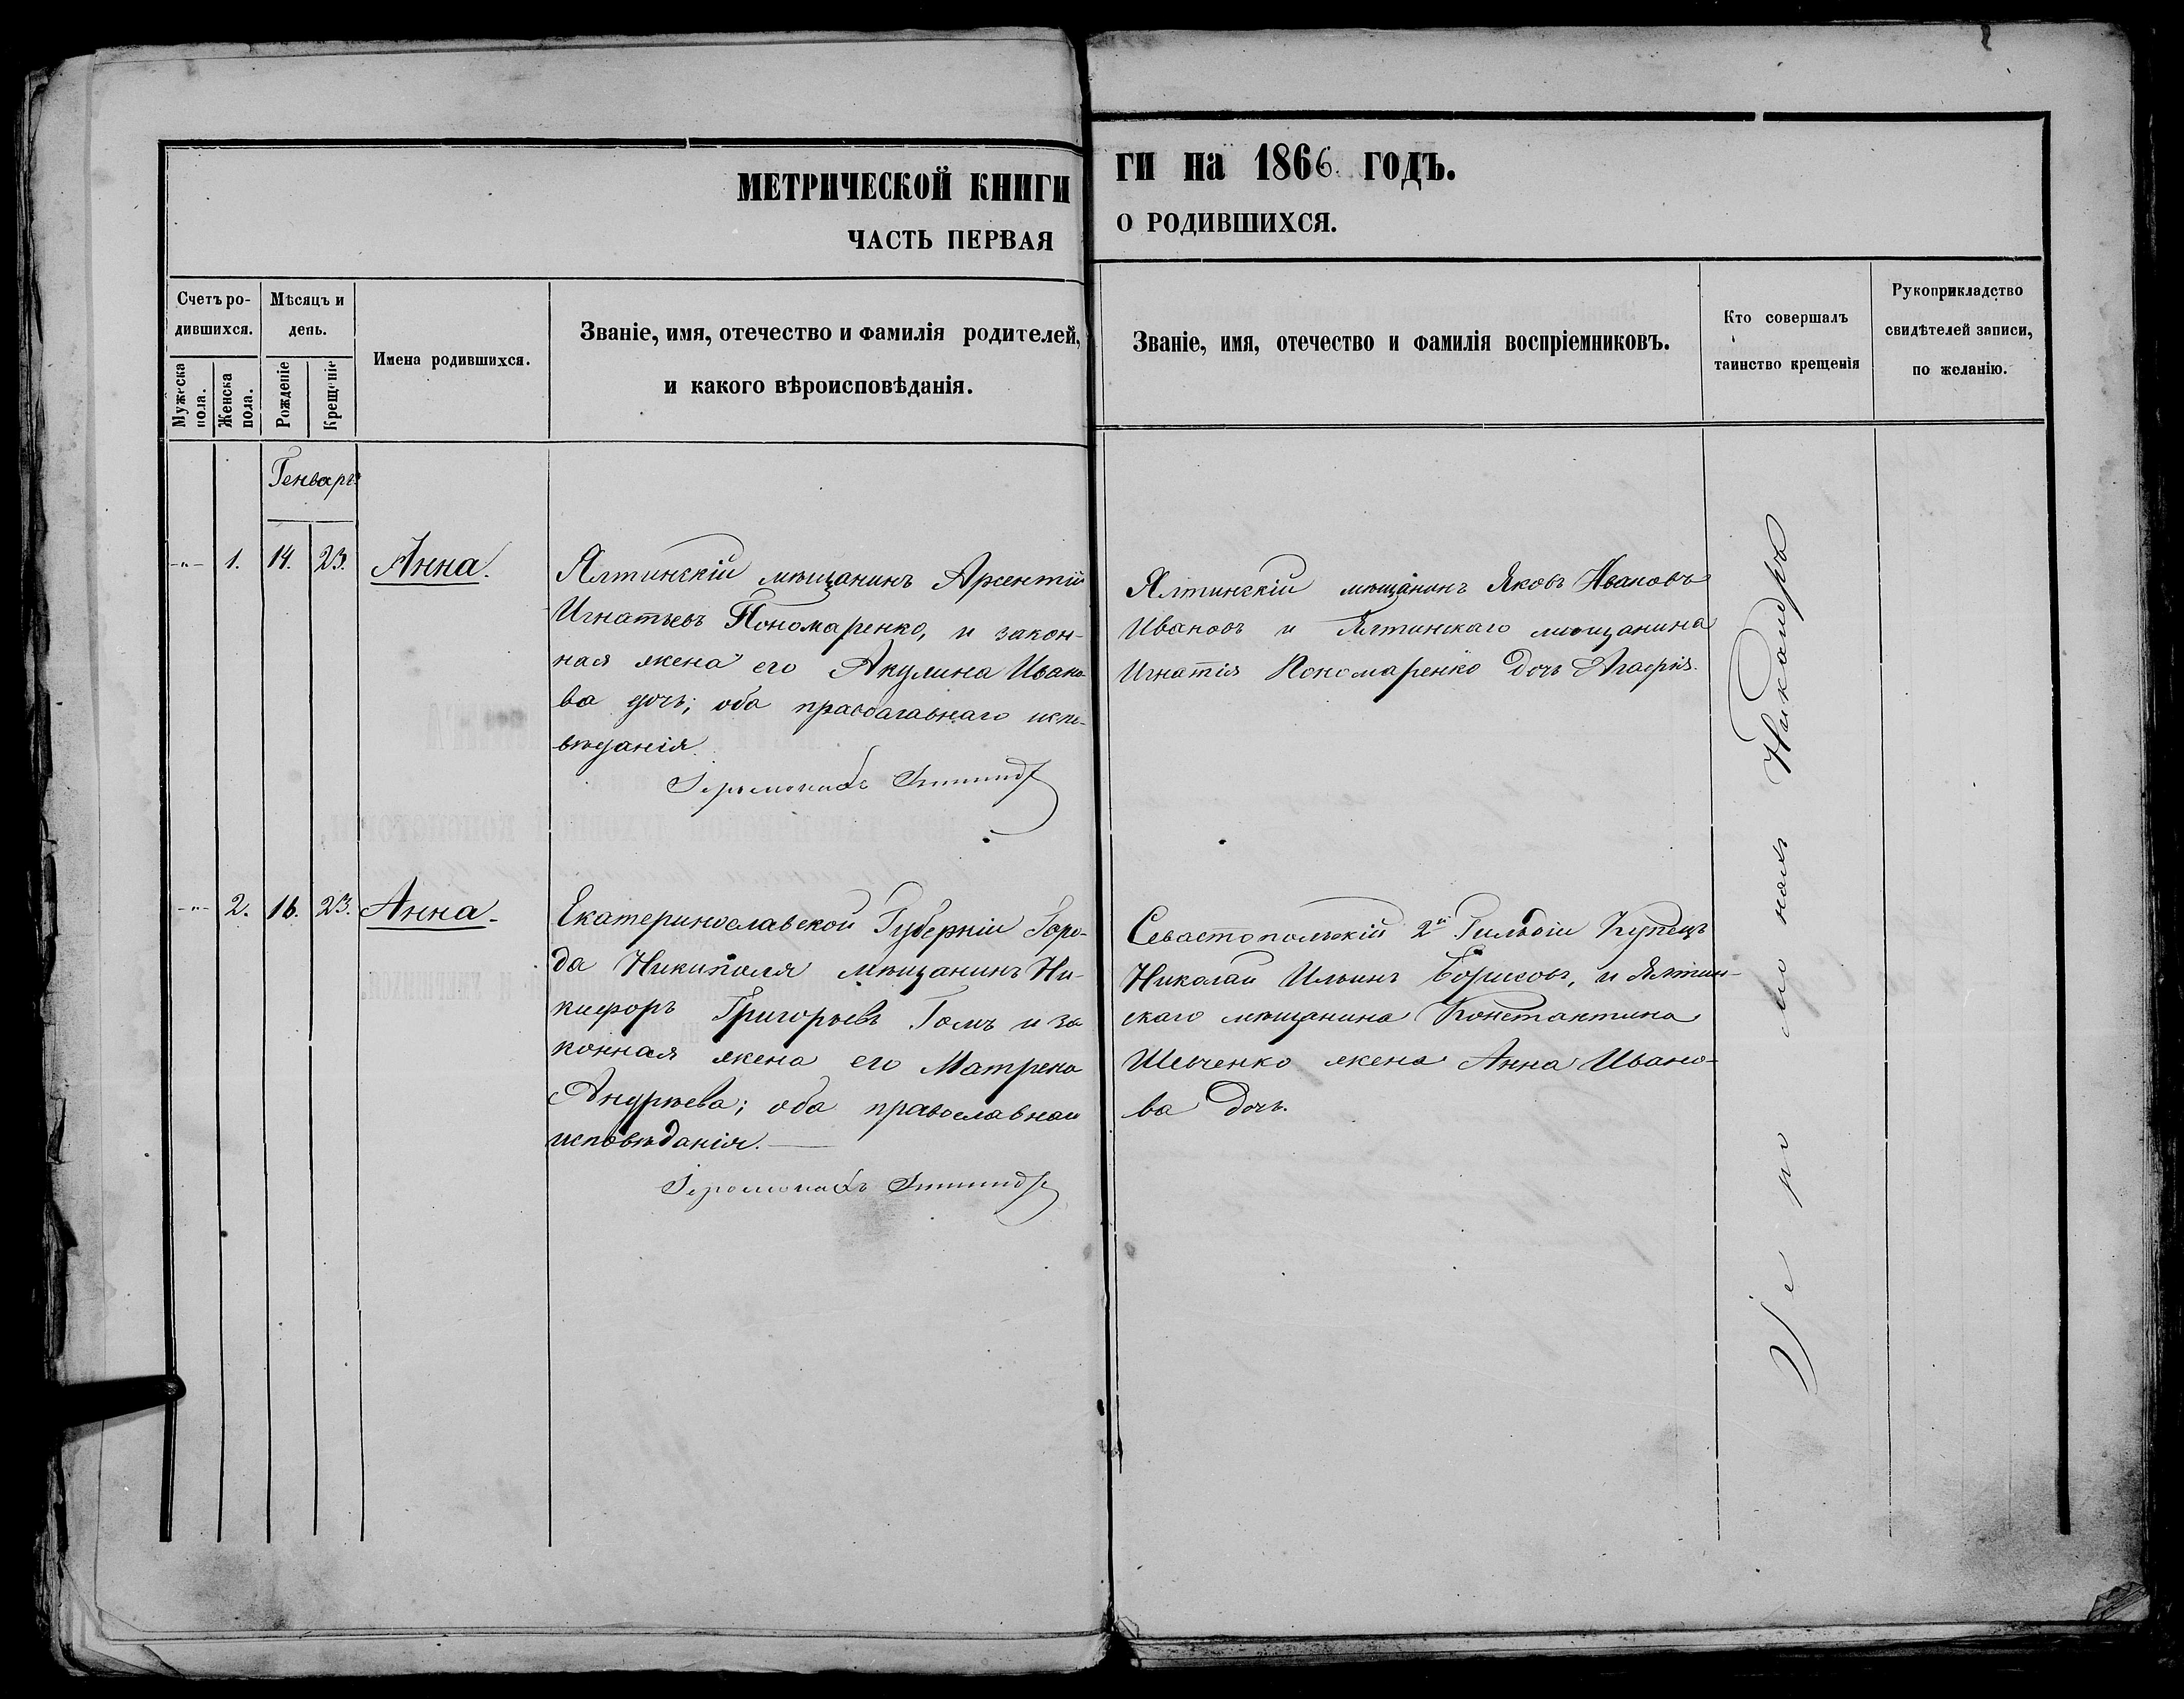 МЕТРИЧЕСКОЙ КНИГИ
ЧАСТЬ ПЕРВАЯ
Счетъ ро-
дившихся.
Мѣсяцъ и
день.
Мужеска
пола.
Женска
пола.
Рожденіе
Крещеніе
Имена родившихся.
Званіе, имя, отечество и фамилія родителей,
и какого вѣроисповѣданія.
Генварь
-"- 1. 14. 23. Анна.
Ялтинскій мѣщанинъ Арсентій
Игнатьевъ Пономаренко, и закон-
ная жена его Акулина Ивано-
ва дочь; оба православнаго испо-
вѣданія.
Іеромонахъ
-"- 2. 16. 23. Анна.
Екатеринославской Губерніи Горо-
да Никиполя мѣщанинъ Ни-
кифоръ Григорьевъ Голъ и за
конная жена его Матрена
Андрѣева; оба православнаи
исповѣданія.
Іеромонахъ
ГИ на 1866 ГОДЪ.
О РОДИВШИХСЯ.
Званіе, имя, отечество и фамилія воспріемниковъ.
Кто совершалъ
таинство крещенія
Рукоприкладство
свидѣтелей записи,
по желанію.
Ялтинскій мѣщанинъ Яковъ Ивановъ
Ивановъ и Ялтинскаго мѣщанина
Игнатія Пономаренко дочь Агафія.
Севастопольскій 2й Гильдіи Купецъ
Николай Ильинъ Борисовъ, и Ялтин-
скаго мѣщанина Константина
Шевченко жена Анна Ивано-
ва дочь.
Іеромонахъ Никандръ